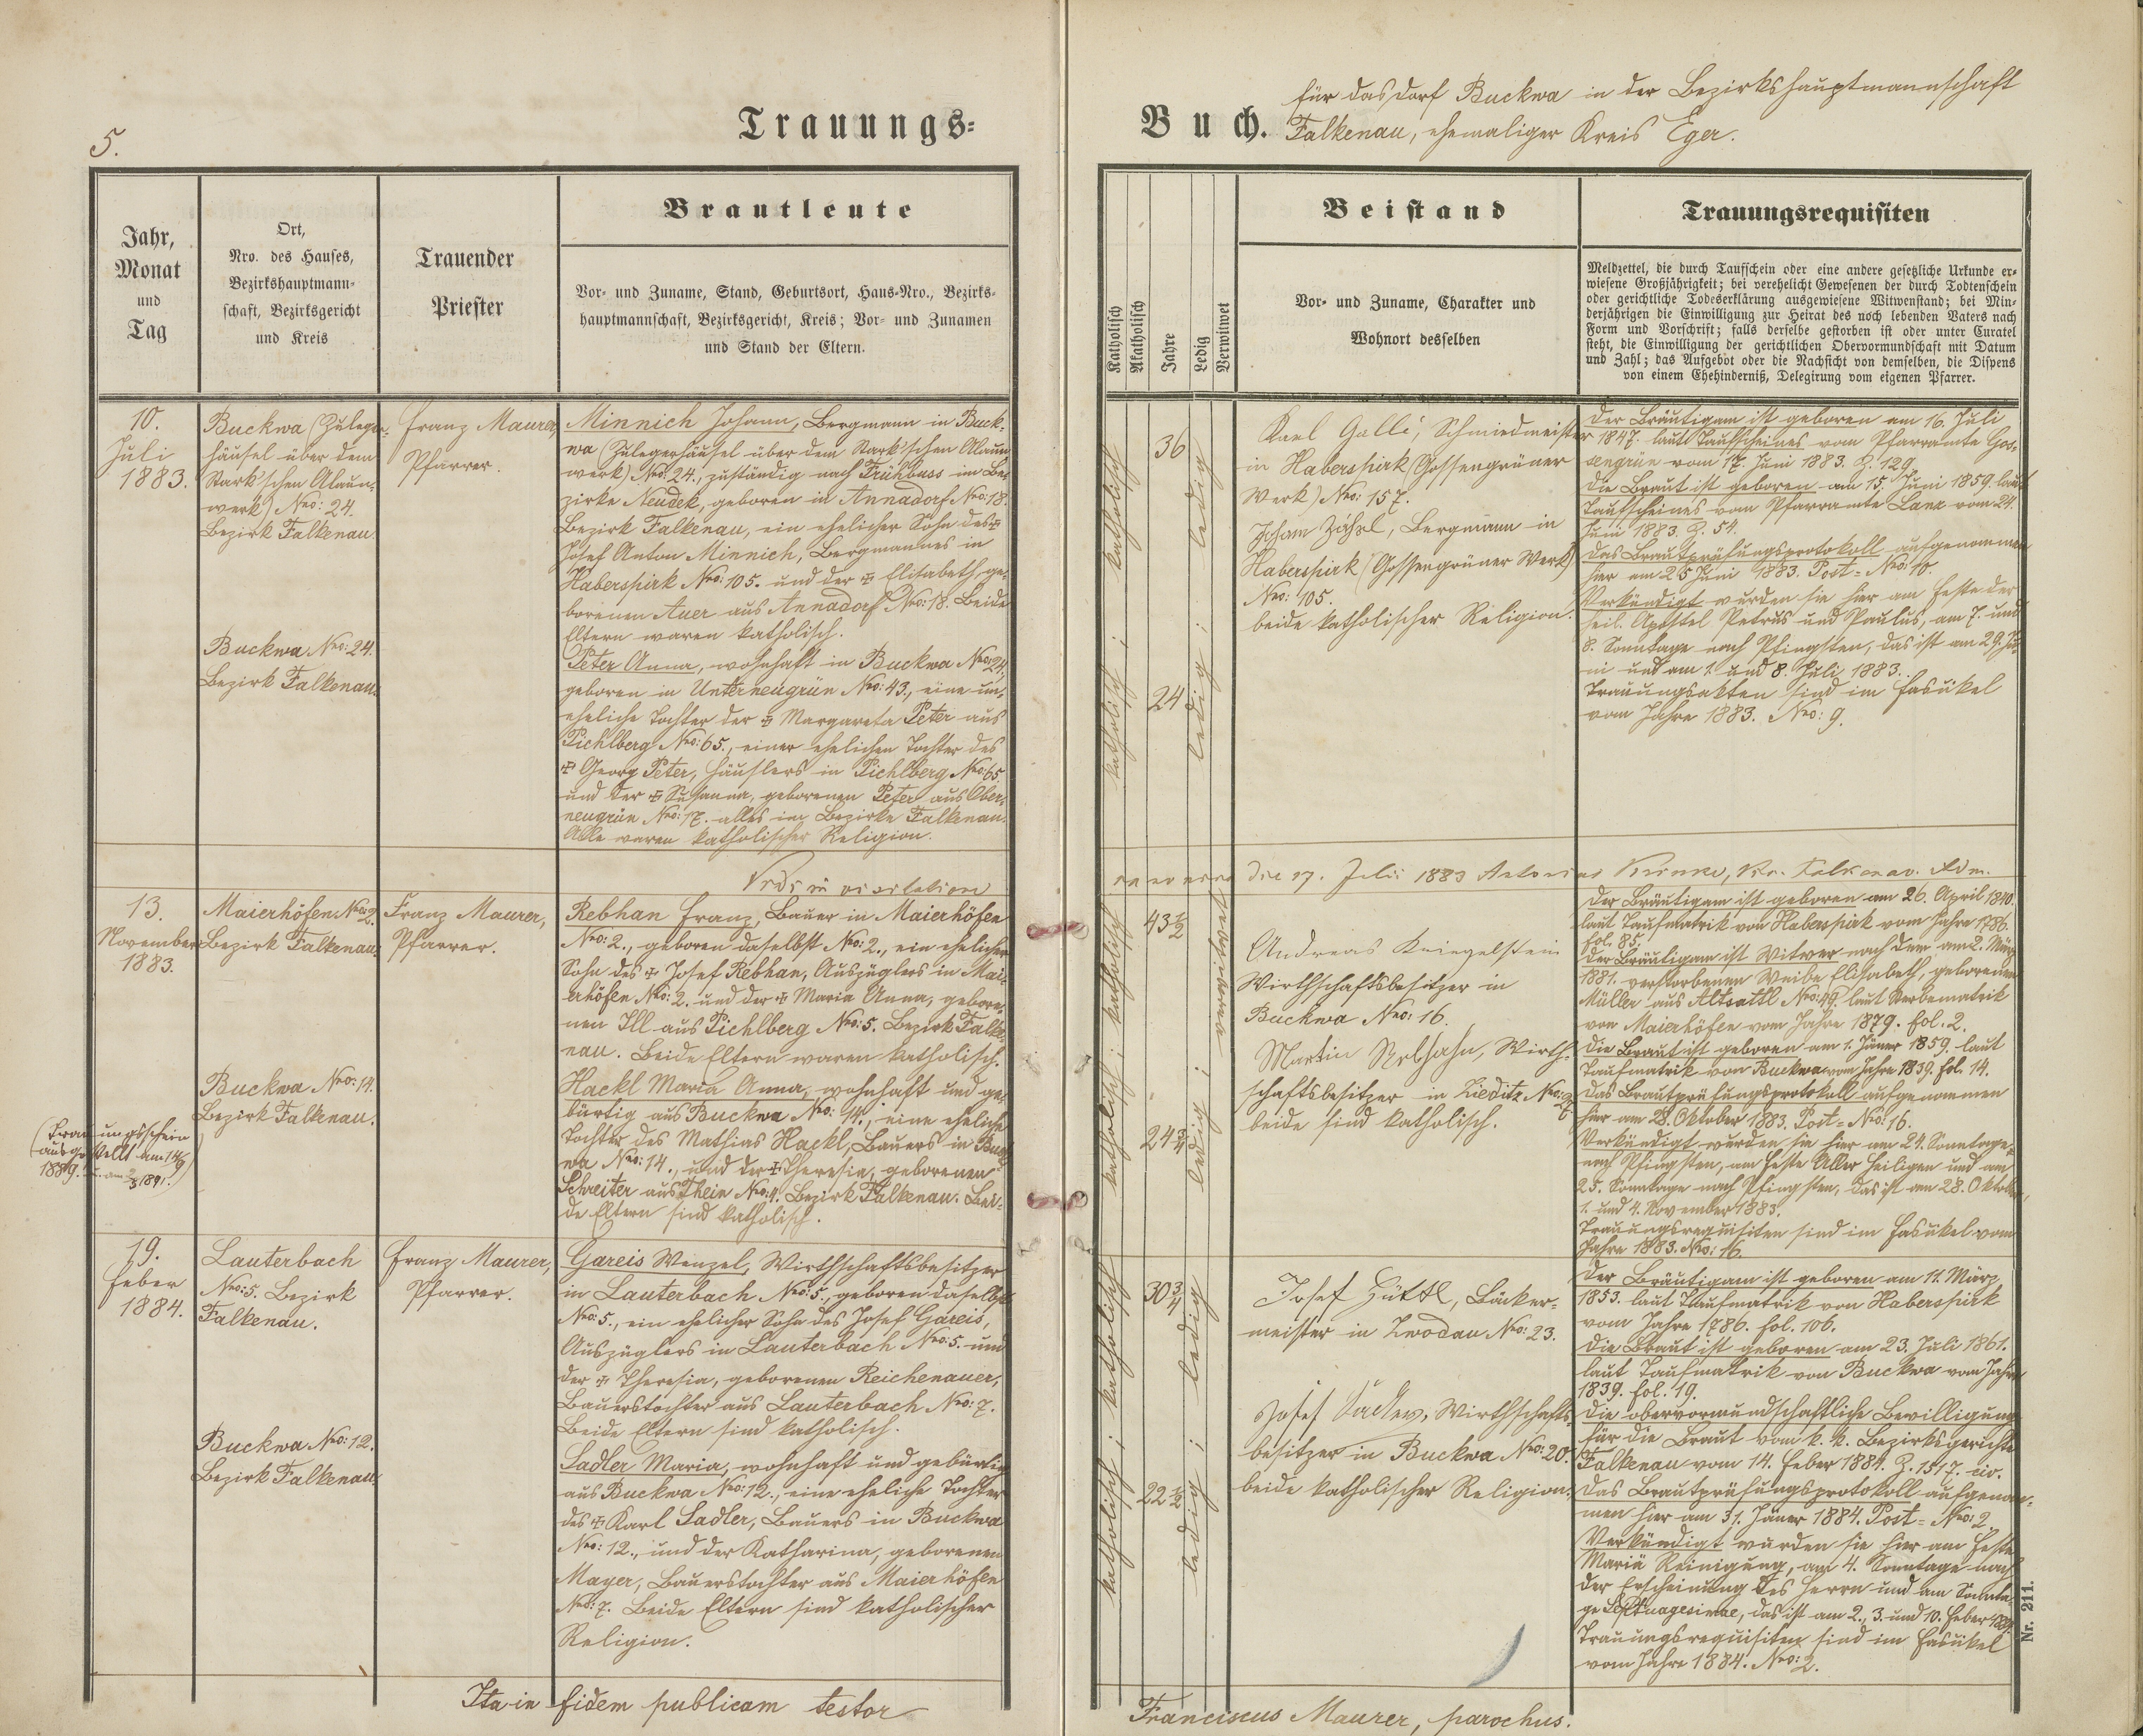 5.
Trauungs-
Buch.
für das Dorf Buckwa in der Bezirkshauptmannschaft
Falkenau, ehemaliger Kreis Eger.
Jahr,
Monat
und
Tag
Ort,
Nro. des Hauses,
Bezirkshauptmann-
schaft, Bezirksgericht
und Kreis
Trauender
Priester
Brautleute
Vor- und Zuname, Stand, Geburtsort, Haus-Nro., Bezirks-
hauptmannschaft, Bezirksgericht, Kreis; Vor- und Zunamen
und Stand der Eltern.
Katholisch
Akatholisch
Jahre
Ledig
Verwitwet
Beistand
Vor- und Zuname, Charakter und
Wohnort desselben
Trauungsrequisiten
Meldzettel, die durch Taufschein oder eine andere gesetzliche Urkunde er-
wiesene Großjährigkeit; bei verehelicht Gewesenen der durch Todtenschein
oder gerichtliche Todeserklärung ausgewiesene Witwenstand; bei Min-
derjährigen die Einwilligung zur Heirat des noch lebenden Vaters nach
Form und Vorschrift; falls derselbe gestorben ist oder unter Curatel
steht, die Einwilligung der gerichtlichen Obervormundschaft mit Datum
und Zahl; das Aufgebot oder die Nachsicht von demselben, die Dispens
von einem Ehehinderniß, Delegirung vom eigenen Pfarrer.
10.
Juli
1883.
Buckwa (Zuleger-
häusel über dem
Stark'schen Alaun-
werk) Nro: 24.
Bezirk Falkenau.
Buckwa Nro: 24.
Bezirk Falkenau.
Franz Maurer,
Pfarrer.
Minnich Johann, Bergmann in Buck-
wa (Zulegerhäusel über dem Stark'schen Alaun
werk) Nro: 24., zuständig nach Frühbuss im Be-
zirke Neudek, geboren in Annadorf Nro: 18.
Bezirk Falkenau, ein ehelicher Sohn des ✠
Josef Anton Minnich, Bergmannes in
Haberspirk Nro: 105. und der ✠ Elisabeth, ge-
borenen Auer aus Annadorf Nro: 18. Beide
Eltern waren katholisch.
Peter Anna, wohnhaft in Buckwa Nro: 24.,
geboren in Unterneugrün Nro: 43., eine un-
eheliche Tochter der ✠ Margareta Peter aus
Pichlberg Nro: 65., einer ehelichen Tochter des
✠ Georg Peter, Häuslers in Pichlberg Nro: 65.
und der ✠ Susanna, geborenen Peter aus Ober-
neugrün Nro: 17. alles im Bezirke Falkenau.
Alle waren katholischer Religion.
katholisch; katholisch
36
24
ledig; ledig
Karl Galli, Schmiedmeister
in Haberspirk (Gossengrüner
Werk) Nro: 157.
Johann Zähzl, Bergmann in
Haberspirk (Gossengrüner Werk)
Nro: 105.
beide katholischer Religion.
Der Bräutigam ist geboren am 16. Juli
1847. laut Taufscheines vom Pfarramte Gos-
sengrün vom 17. Juni 1883. Z. 129.
Die Braut ist geboren am 15. Juni 1859. laut
Taufscheines vom Pfarramte Lanz vom 24.
Juni 1883. Z. 54.
Das Brautprüfungsprotokoll aufgenommen
hier am 25 Juni 1883. Post-Nro: 10.
Verkündigt wurden sie hier am Feste der
heil. Apostel Petrus und Paulus, am 7. und
8. Sonntage nach Pfingsten, das ist am 29. Ju-
ni und am 1. und 8. Juli 1883.
Trauungsakten sind im Fasükel
vom Jahre 1883. Nro: 9.
die 17. Juli 1883 Antonius
13.
November
1883.
Maierhöfen Nro: 2.
Bezirk Falkenau.
Buckwa Nro: 14.
Bezirk Falkenau.
(Trauungsschein
ausgestellt am 14/9
1889. u. am 2/3 1891.)
Franz Maurer,
Pfarrer.
Rebhan Franz, Bauer in Maierhöfen
Nro: 2., geboren daselbst Nro: 2., ein ehelicher
Sohn des ✠ Josef Rebhan, Auszüglers in Mai-
erhöfen Nro: 2. und der ✠ Maria Anna, gebore-
nen Ill aus Pichlberg Nro: 5. Bezirk Falke-
nau. Beide Eltern waren katholisch.
Hackl Maria Anna, wohnhaft und ge-
bürtig aus Buckwa Nro: 14., eine eheliche
Tochter des Mathias Hackl, Bauers in Buck-
wa Nro: 14., und der ✠ Theresia, geborenen
Schreiter aus Thein Nro: 4. Bezirk Falkenau. Bei-
de Eltern sind katholisch.
katholisch; katholisch
43 1/2
24 3/4
ledig; verwitwet
Andreas Kriegelstein
Wirthschaftsbesitzer in
Buckwa Nro: 16.
Martin Rebhahn, Wirth-
schaftsbesitzer in Zieditz Nro: 7
beide sind katholisch.
Der Bräutigam ist geboren am 26. April 1840.
laut Taufmatrik von Haberspirk vom Jahre 1786.
fol. 85.
Der Bräutigam ist Witwer nach dem am 2. März
1881. verstorbenen Weibe Elisabeth, geborenen
Müller aus Altsattl Nro: 49. laut Sterbematrik
von Maierhöfen vom Jahre 1879. fol. 2.
Die Braut ist geboren am 1. Jäner 1859. laut
Taufmatrik von Buckwa vom Jahre 1839. fol. 14.
Das Brautprüfungsprotokoll aufgenommen
hier am 28. Oktober 1883. Post-Nro: 16.
Verkündigt wurden sie hier am 24. Sonntage
nach Pfingsten, am Feste Aller Heiligen und am
25. Sonntage nach Pfingsten, das ist am 28. Oktober,
1. und 4. November 1883.
Trauungsrequisiten sind im Fasükel vom
Jahre 1883. Nro: 16.
19.
Feber
1884.
Lauterbach
Nro: 5. Bezirk
Falkenau.
Buckwa Nro: 12.
Bezirk Falkenau.
Franz Maurer,
Pfarrer.
Gareis Wenzel, Wirthschaftsbesitzer
in Lauterbach Nro: 5., geboren daselbst
Nro: 5., ein ehelicher Sohn des Josef Gareis,
Auszüglers in Lauterbach Nro: 5. und
der ✠ Theresia, geborenen Reichenauer,
Bauerstochter aus Lauterbach Nro: 7.
Beide Eltern sind katholisch.
Sadler Maria, wohnhaft und gebürtig
aus Buckwa Nro: 12., eine eheliche Tochter
des ✠ Karl Sadler, Bauers in Buckwa
Nro: 12., und der Katharina, geborenen
Mayer, Bauerstochter aus Maierhöfen
Nro: 7. Beide Eltern sind katholischer
Religion.
katholisch; katholisch
30 3/4
22 1/2
ledig; ledig
Josef Hüttl, Bäcker-
meister in Zwodau Nro: 23.
Josef Sadler, Wirthschafts-
besitzer in Buckwa Nro: 20.
beide katholischer Religion.
Der Bräutigam ist geboren am 11. März
1853. laut Taufmatrik von Haberspirk
vom Jahre 1786. fol. 106.
Die Braut ist geboren am 23. Juli 1861.
laut Taufmatrik von Buckwa vom Jahre
1839. fol. 19.
Die obervormundschaftliche Bewilligung
für die Braut vom k. k. Bezirksgerichte
Falkenau vom 14. Feber 1884. Z. 1517. civ.
Das Brautprüfungsprotokoll aufgenom-
men hier am 31. Jäner 1884. Post-Nro: 2.
Verkündigt wurden sie hier am Feste
Mariä Reinigung, am 4. Sonntage nach
der Erscheinung des Herrn und am Sonnta-
ge Septuagesimae, das ist am 2., 3. und 10. Feber 1884.
Trauungsrequisiten sind im Fasükel
vom Jahre 1884. Nro: 2.
Nr. 211.
Ita in fidem publicam testor
Franciscus Maurer, parochus.